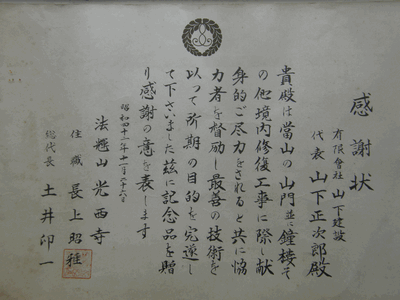 感謝状
有限會社 山下建設
代表 山下正次郎殿
貴殿は當山の山門並に鐘楼そ
の他境内修復工事に際し献
身的ご尽力をされると共に協
力者を督励し最善の技術を
以って所期の目的を完遂し
て下さいました茲に記念品を贈
り感謝の意を表します
昭和四十二年十一月二十六日
法輪山 光西寺
住職 長上昭雄
総代長 土井卯一